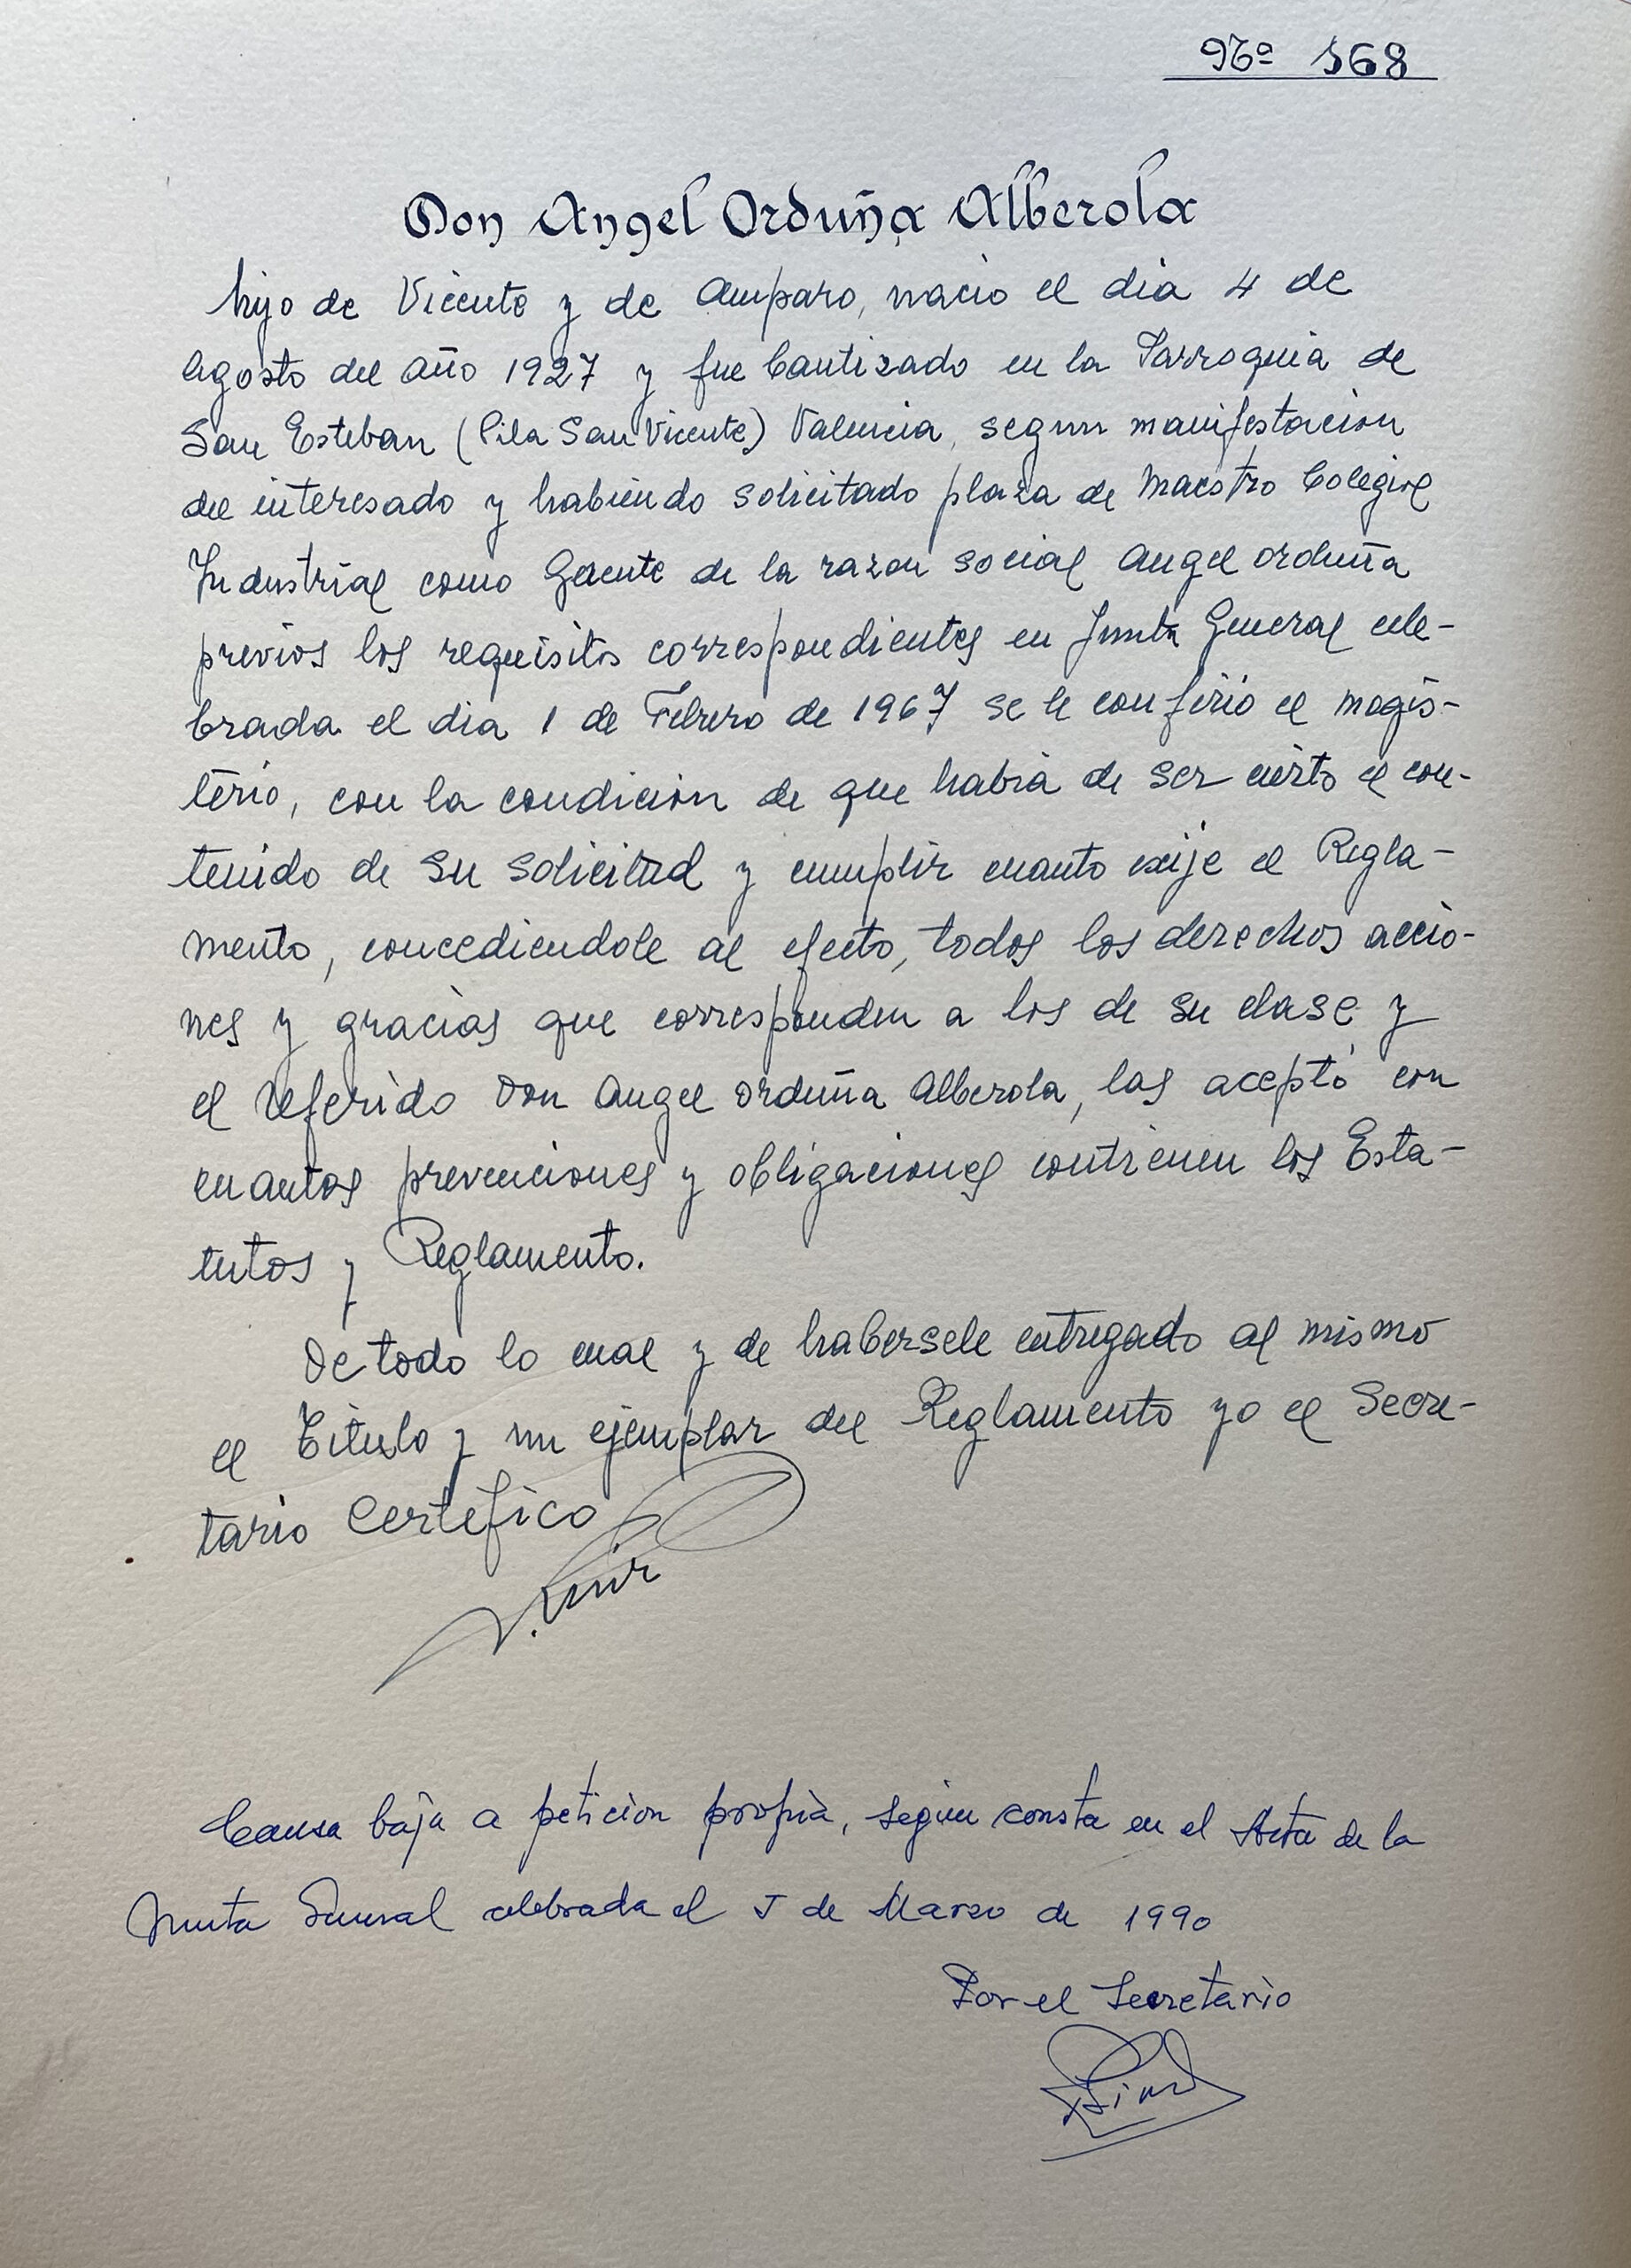 Nº 168
Don Angel Orduña Alberola
hijo de Vicente y de Amparo, nacio el dia 4 de
Agosto del Año 1927 y fue bautizado en la Parroquia de
San Esteban (Pila San Vicente) Valencia, segun manifestacion
del interesado y habiendo solicitado plaza de Maestro Colegial
Industrial como Gerente de la razon social Angel Orduña
previos los requisitos correspondientes en Junta General cele-
brada el dia 1 de Febrero de 1967 se le confirio el magis-
terio, con la condicion de que habia de ser cierto el con-
tenido de su solicitud y cumplir cuanto exije el Regla-
mento, concediendole al efecto, todos los derechos accio-
nes y gracias que corresponden a los de su clase y
el referido Don Angel Orduña Alberola, las aceptó con
cuantas prevenciones y obligaciones contienen los Esta-
tutos y Reglamento.
De todo lo cual y de habersele entregado al mismo
el Titulo y un ejemplar del Reglamento yo el Secre-
tario Certefico
Causa baja a peticion propia, segun consta en el Acta de la
Junta General celebrada el 5 de Marzo de 1990
Por el Secretario